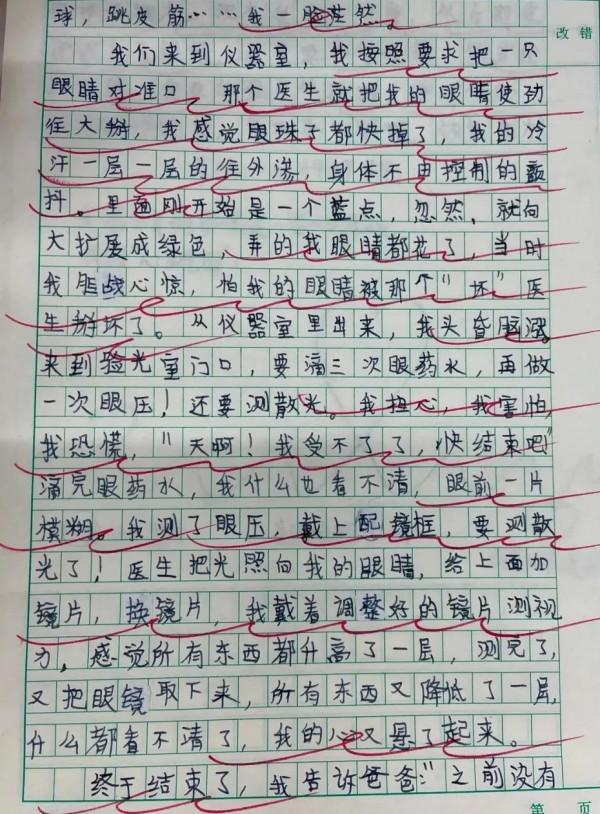 球，跳皮筋……我一脸茫然。
改错
我们来到仪器室，我按照要求把一只
眼睛对准口　那个医生就把我的眼睛使劲
往大掰，我感觉眼珠子都快掉了，我的冷
汗一层一层的往外渗，身体不由控制的颤
抖。里面刚开始是一个蓝点，忽然，就向
大扩展成绿色，弄的我眼睛都花了，当时
我胆战心惊，怕我的眼睛被那个"坏"医
生掰坏了。从仪器室里出来，我头昏脑涨。
来到验光室门口，要滴三次眼药水，再做
一次眼压！还要测散光。我担心，我害怕，
我恐慌，"天啊！我受不了了，快结束吧"
滴完眼药水，我什么也看不清，眼前一片
模糊。我测了眼压，戴上配镜框，要测散
光了！医生把光照向我的眼睛，给上面加
镜片，换镜片，我戴着调整好的镜片测视
力，感觉所有东西都升高了一层，测完了，
又把眼镜取下来，所有东西又降低了一层，
什么都看不清了，我的心又悬了起来。
终于结束了，我告诉爸爸："之前没有
第　页